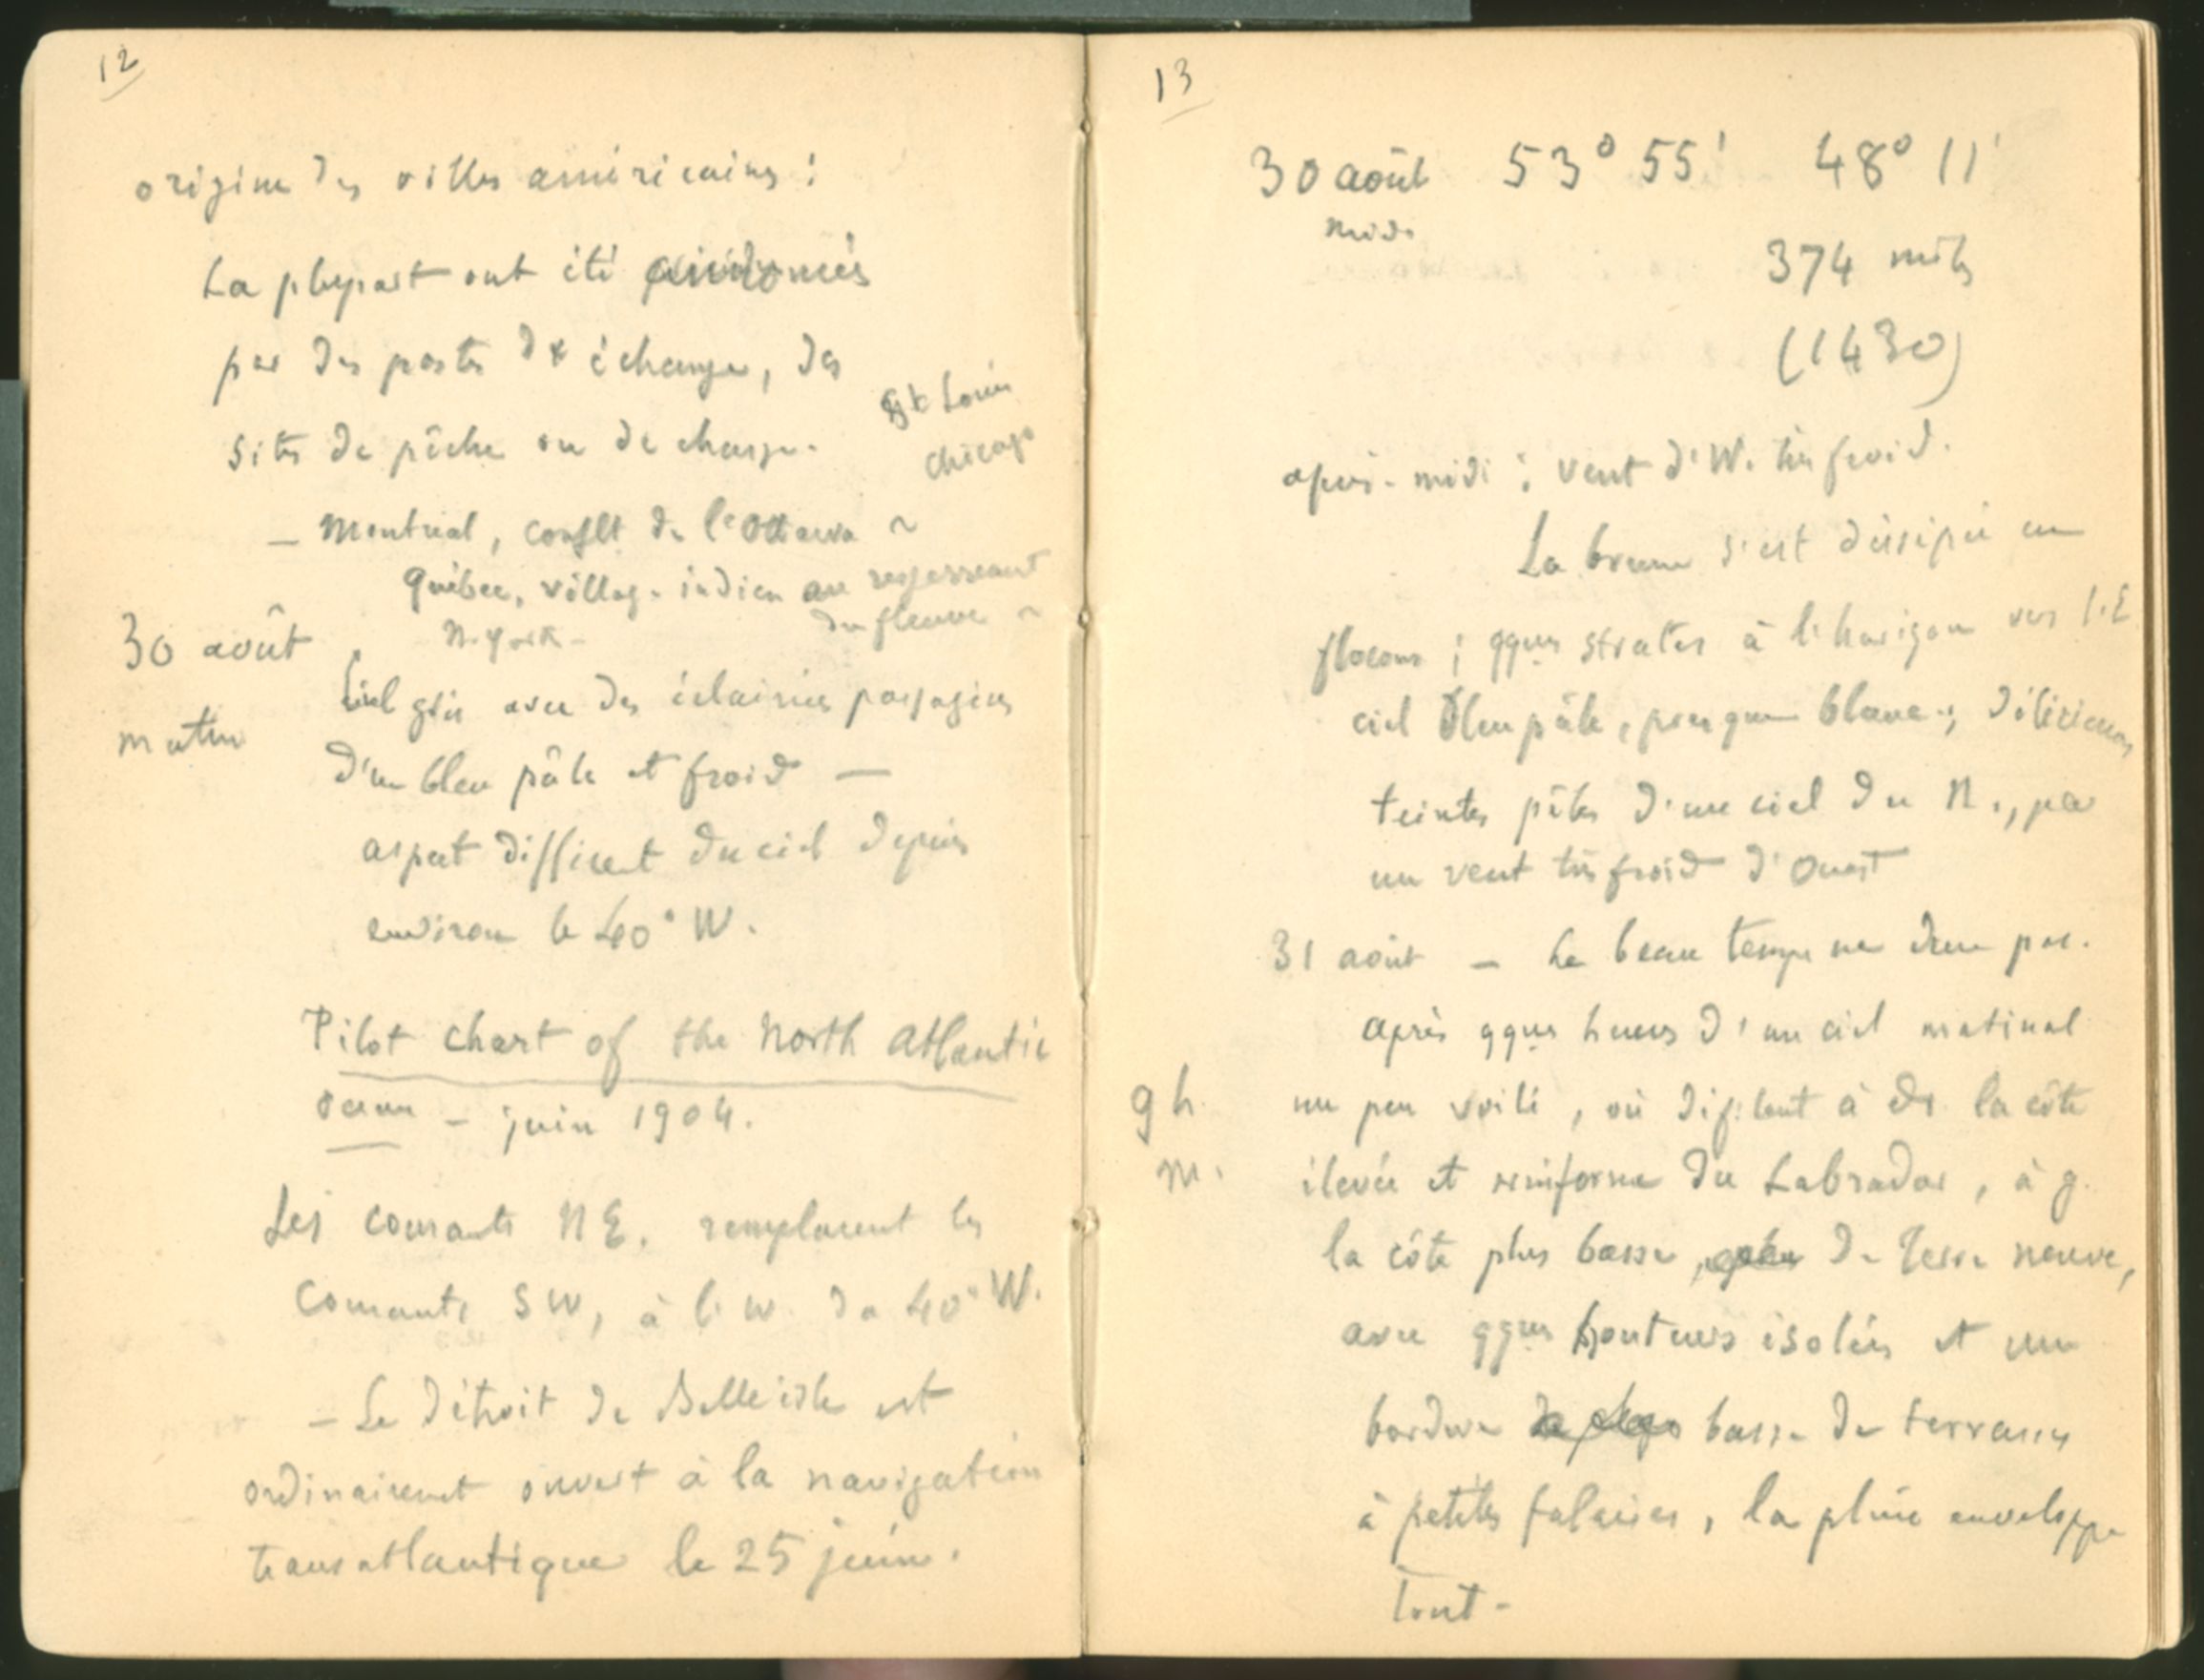 12
origine des villes américaines :
La plupart ont été
par des postes d'échange, des
sites de pêche ou de chasse.
St Louis
Chicago
— Montréal, conflt de l'Ottawa ~
Québec, village indien au
du fleuve ~
N. York —
30 août
matin
Ciel gris avec des éclaircies passagères
d'un bleu pâle et froid —
aspect différent du ciel depuis
environ le 40° W.
Pilot chart of the North Atlantic
ocean — juin 1904.
Les courants NE. remplacent les
courants SW, à l'W. du 40° W.
— Le détroit de Belle isle est
ordinairement ouvert à la navigation
transatlantique le 25 juin.
13
30 août 53° 55' 48° 11'
midi
374 miles
(1430)
après-midi : vent d'W. très froid.
La brume s'est dissipée en
flocons ; qques strates à l'horizon vers l'E
ciel bleu pâle, presque blanc ; délicieuses
teintes pâles d'un ciel du N., par
un vent très froid d'Ouest
31 août — Le beau temps ne dure pas.
après qques heures d'un ciel matinal
9 h.
m.
un peu voilé, où défilent à dr. la côte
élevée et uniforme du Labrador, à g.
la côte plus basse, de Terre neuve,
avec qques hauteurs isolées et une
bordure basse de terrasses
à petites falaises, la pluie enveloppe
tout -